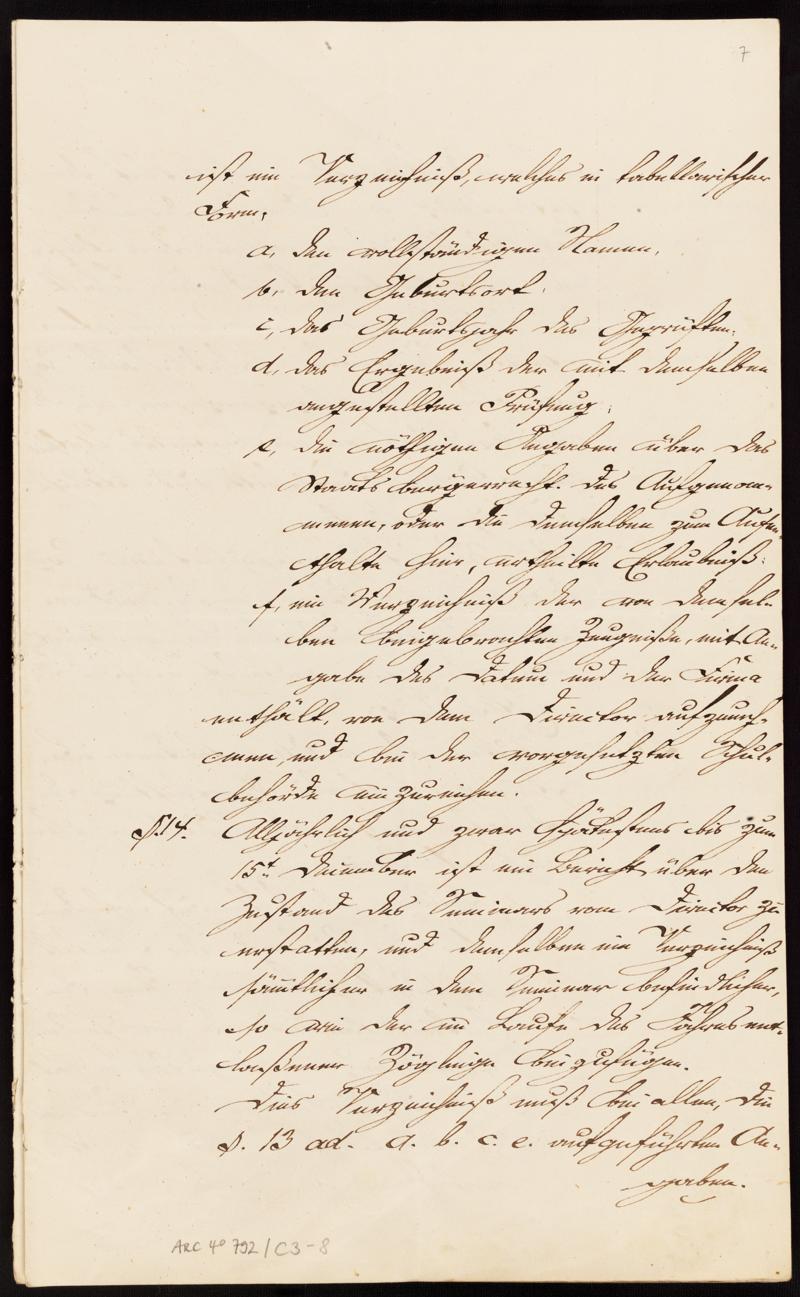 7
ist ein Verzeichniß, welches in tabellarischer
Form,
a, den vollständigen Namen,
b, den Geburtsort,
c, das Geburtsjahr des Geprüften,
d, das Ergebniß der mit demselben
angestellten Prüfung,
e, die nöthigen Angaben über das
Staatsbürgerrecht des Aufgenom-
menen, oder die demselben zum Aufen-
thalte hier, ertheilte Erlaubniß,
f, ein Verzeichniß der von demsel-
ben beigebrachten Zeugniße, mit An-
gabe des Datum und der Firma
enthält, von dem Director aufzuneh-
men, und bei der vorgesetzten Schul-
behörde einzureichen.
§.14. Alljährlich und zwar spätestens bis zum
15t December ist ein Bericht über den
Zustand des Seminars vom Director zu
erstatten, und demselben ein Verzeichniß
sämtlicher in dem Seminar befindlicher,
so wie der im Laufe des Jahres ent-
laßener Zöglinge beizufügen.
Dies Verzeichniß muß bei allen, die
§. 13 ad. a. b. c. e. aufgeführten An-
gaben.
ARC 4° 792 / C3-8